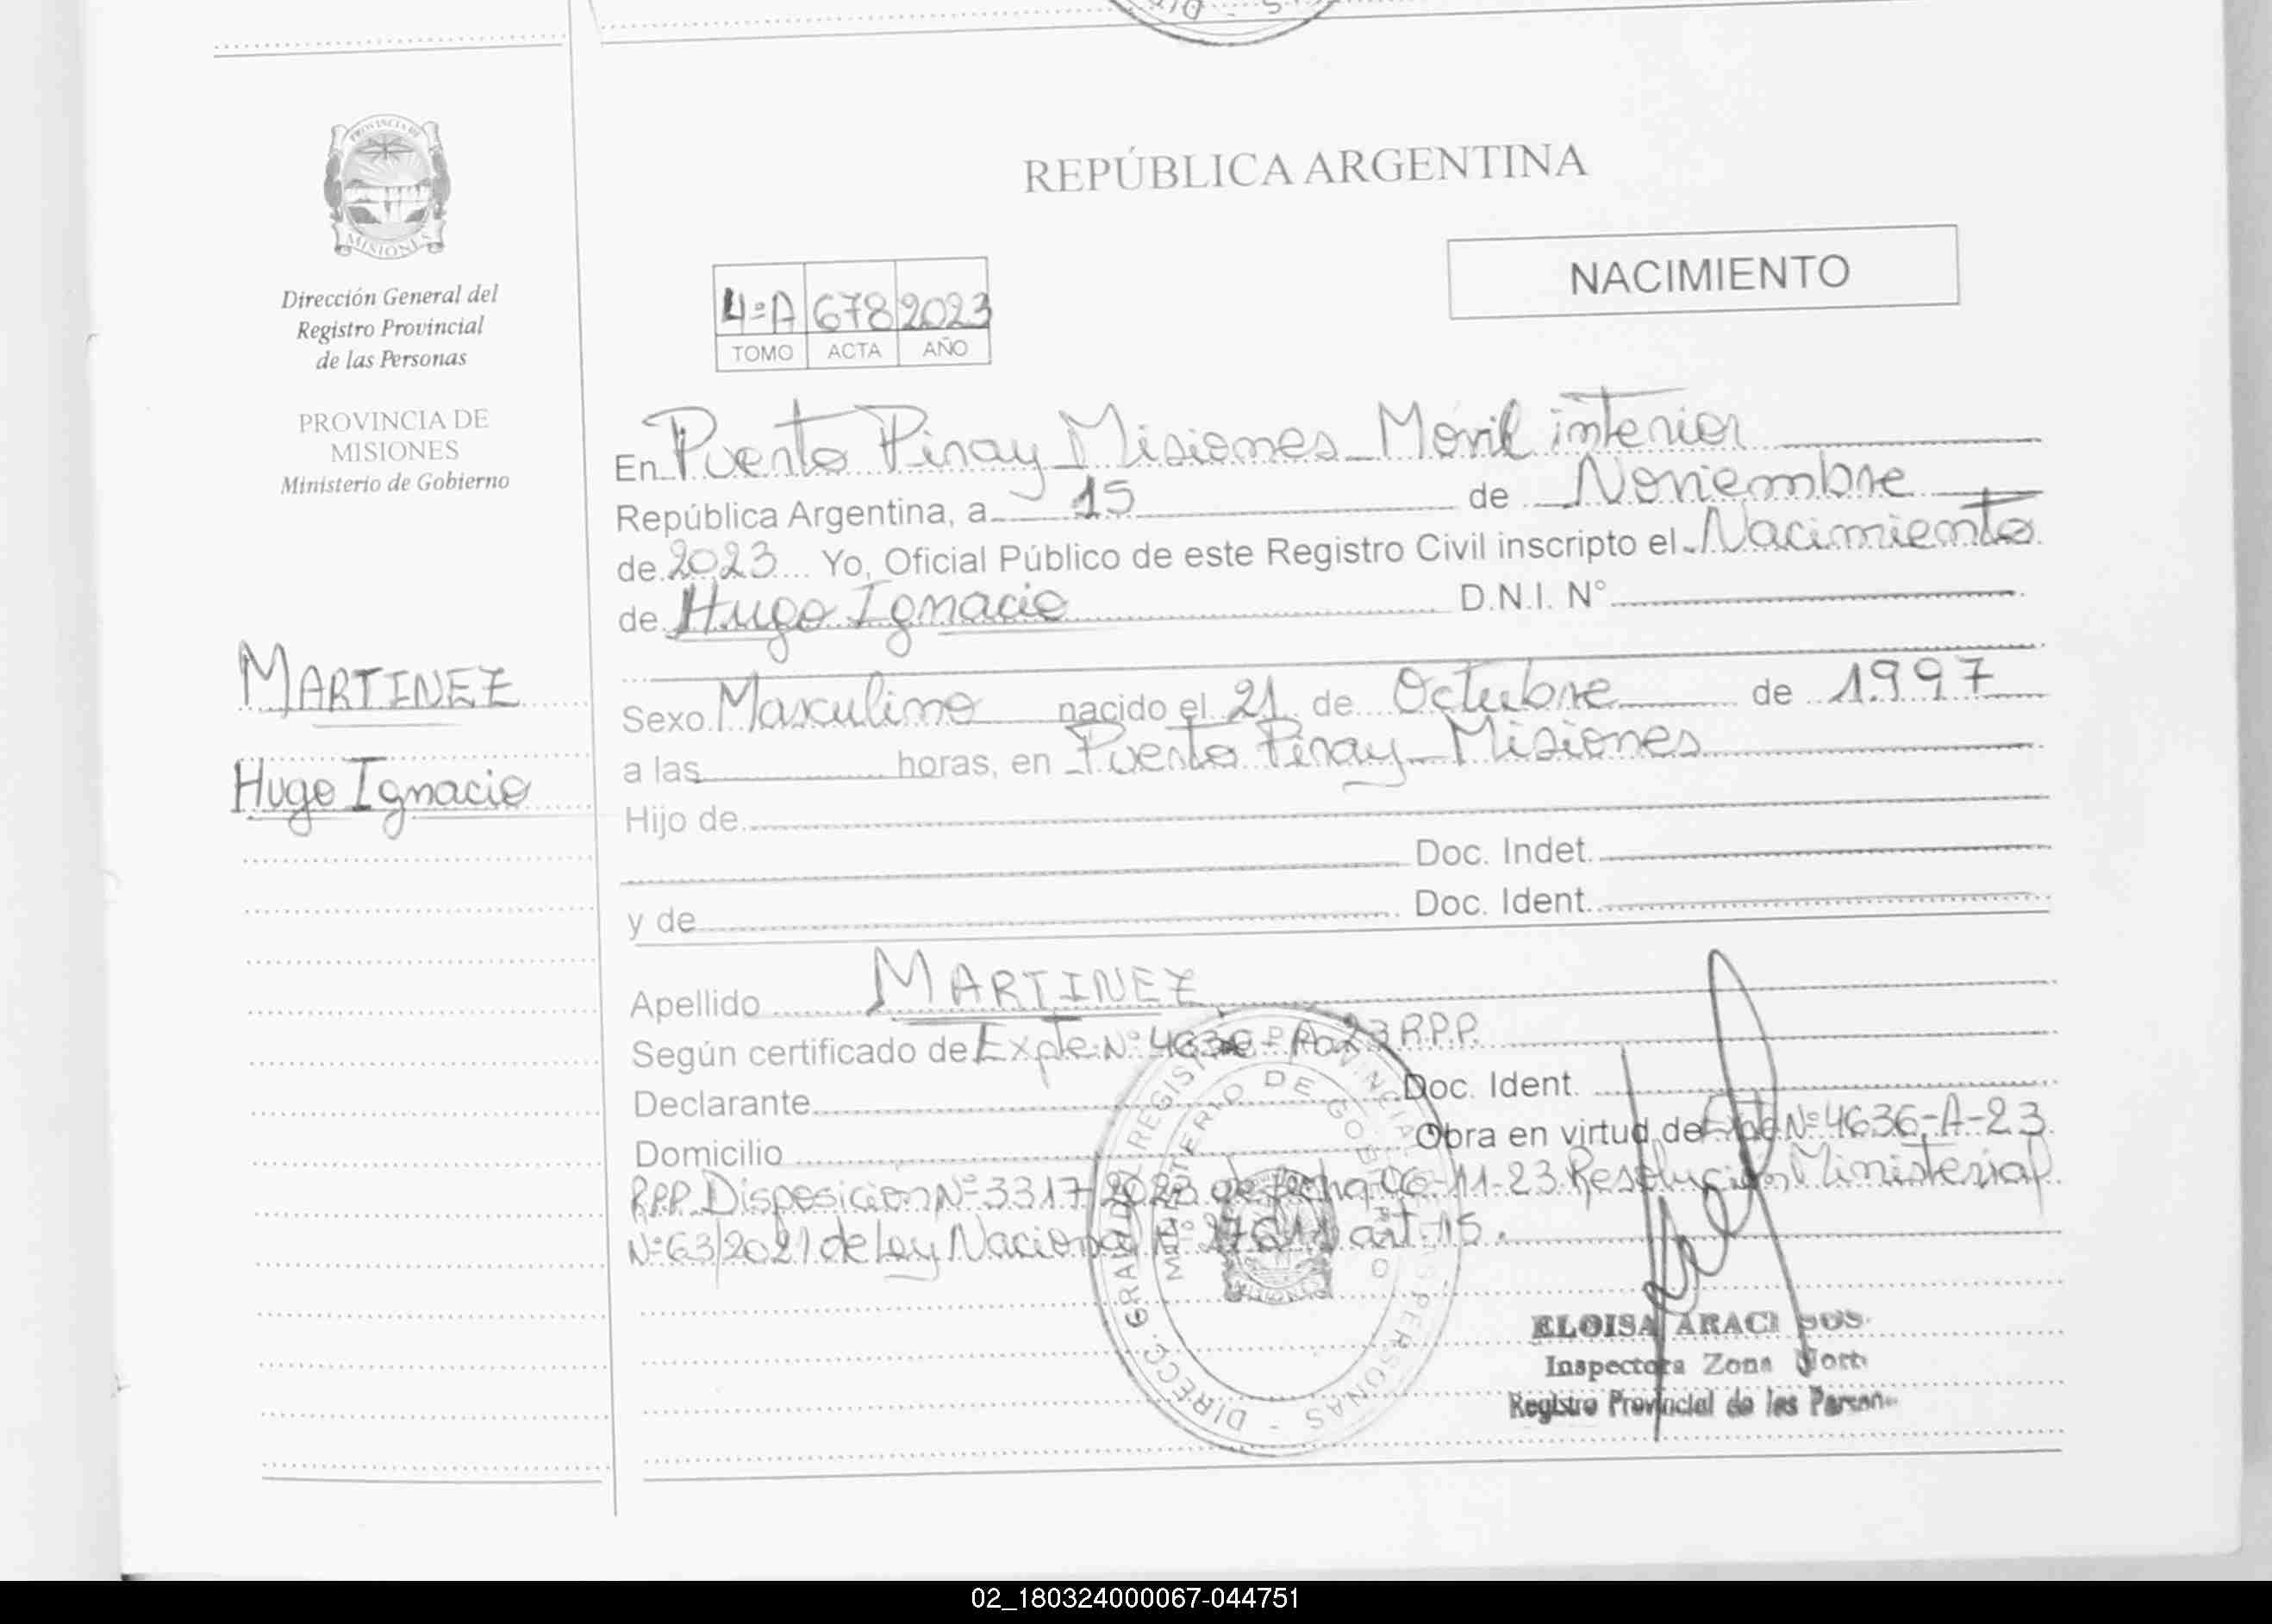 PROVINCIA DE
MISIONES
Dirección General del
Registro Provincial
de las Personas
PROVINCIA DE
MISIONES
Ministerio de Gobierno
MARTINEZ
Hugo Ignacio
REPÚBLICA ARGENTINA
NACIMIENTO
4ºA 678 2023
TOMO ACTA AÑO
En Puerto Piray Misiones Móvil interior
República Argentina, a 15 de Noviembre
de 2023 Yo, Oficial Público de este Registro Civil inscripto el Nacimiento
de Hugo Ignacio D.N.I. Nº
Sexo Masculino nacido el 21 de Octubre de 1997
a las horas, en Puerto Piray - Misiones
Hijo de
Doc. Indet.
y de Doc. Ident.
Apellido MARTINEZ
Según certificado de Expte Nº 4636 - A-23 R.P.P.
Declarante Doc. Ident.
Domicilio Obra en virtud de Expte Nº 4636-A-23
RPP. Disposición Nº 3317/2023 de fecha 06-11-23 Resolución Ministerial
Nº 63/2021 de Ley Nacional Nº 27611 art. 15.
DIRECC. GRAL. DEL REGIST. PROVINCIAL PERSONAS
MINISTERIO DE GOBIERNO
MISIONES
ELOISA ARACI
Inspectora Zona Nort
Registro Provincial de las Person
02_180324000067-044751